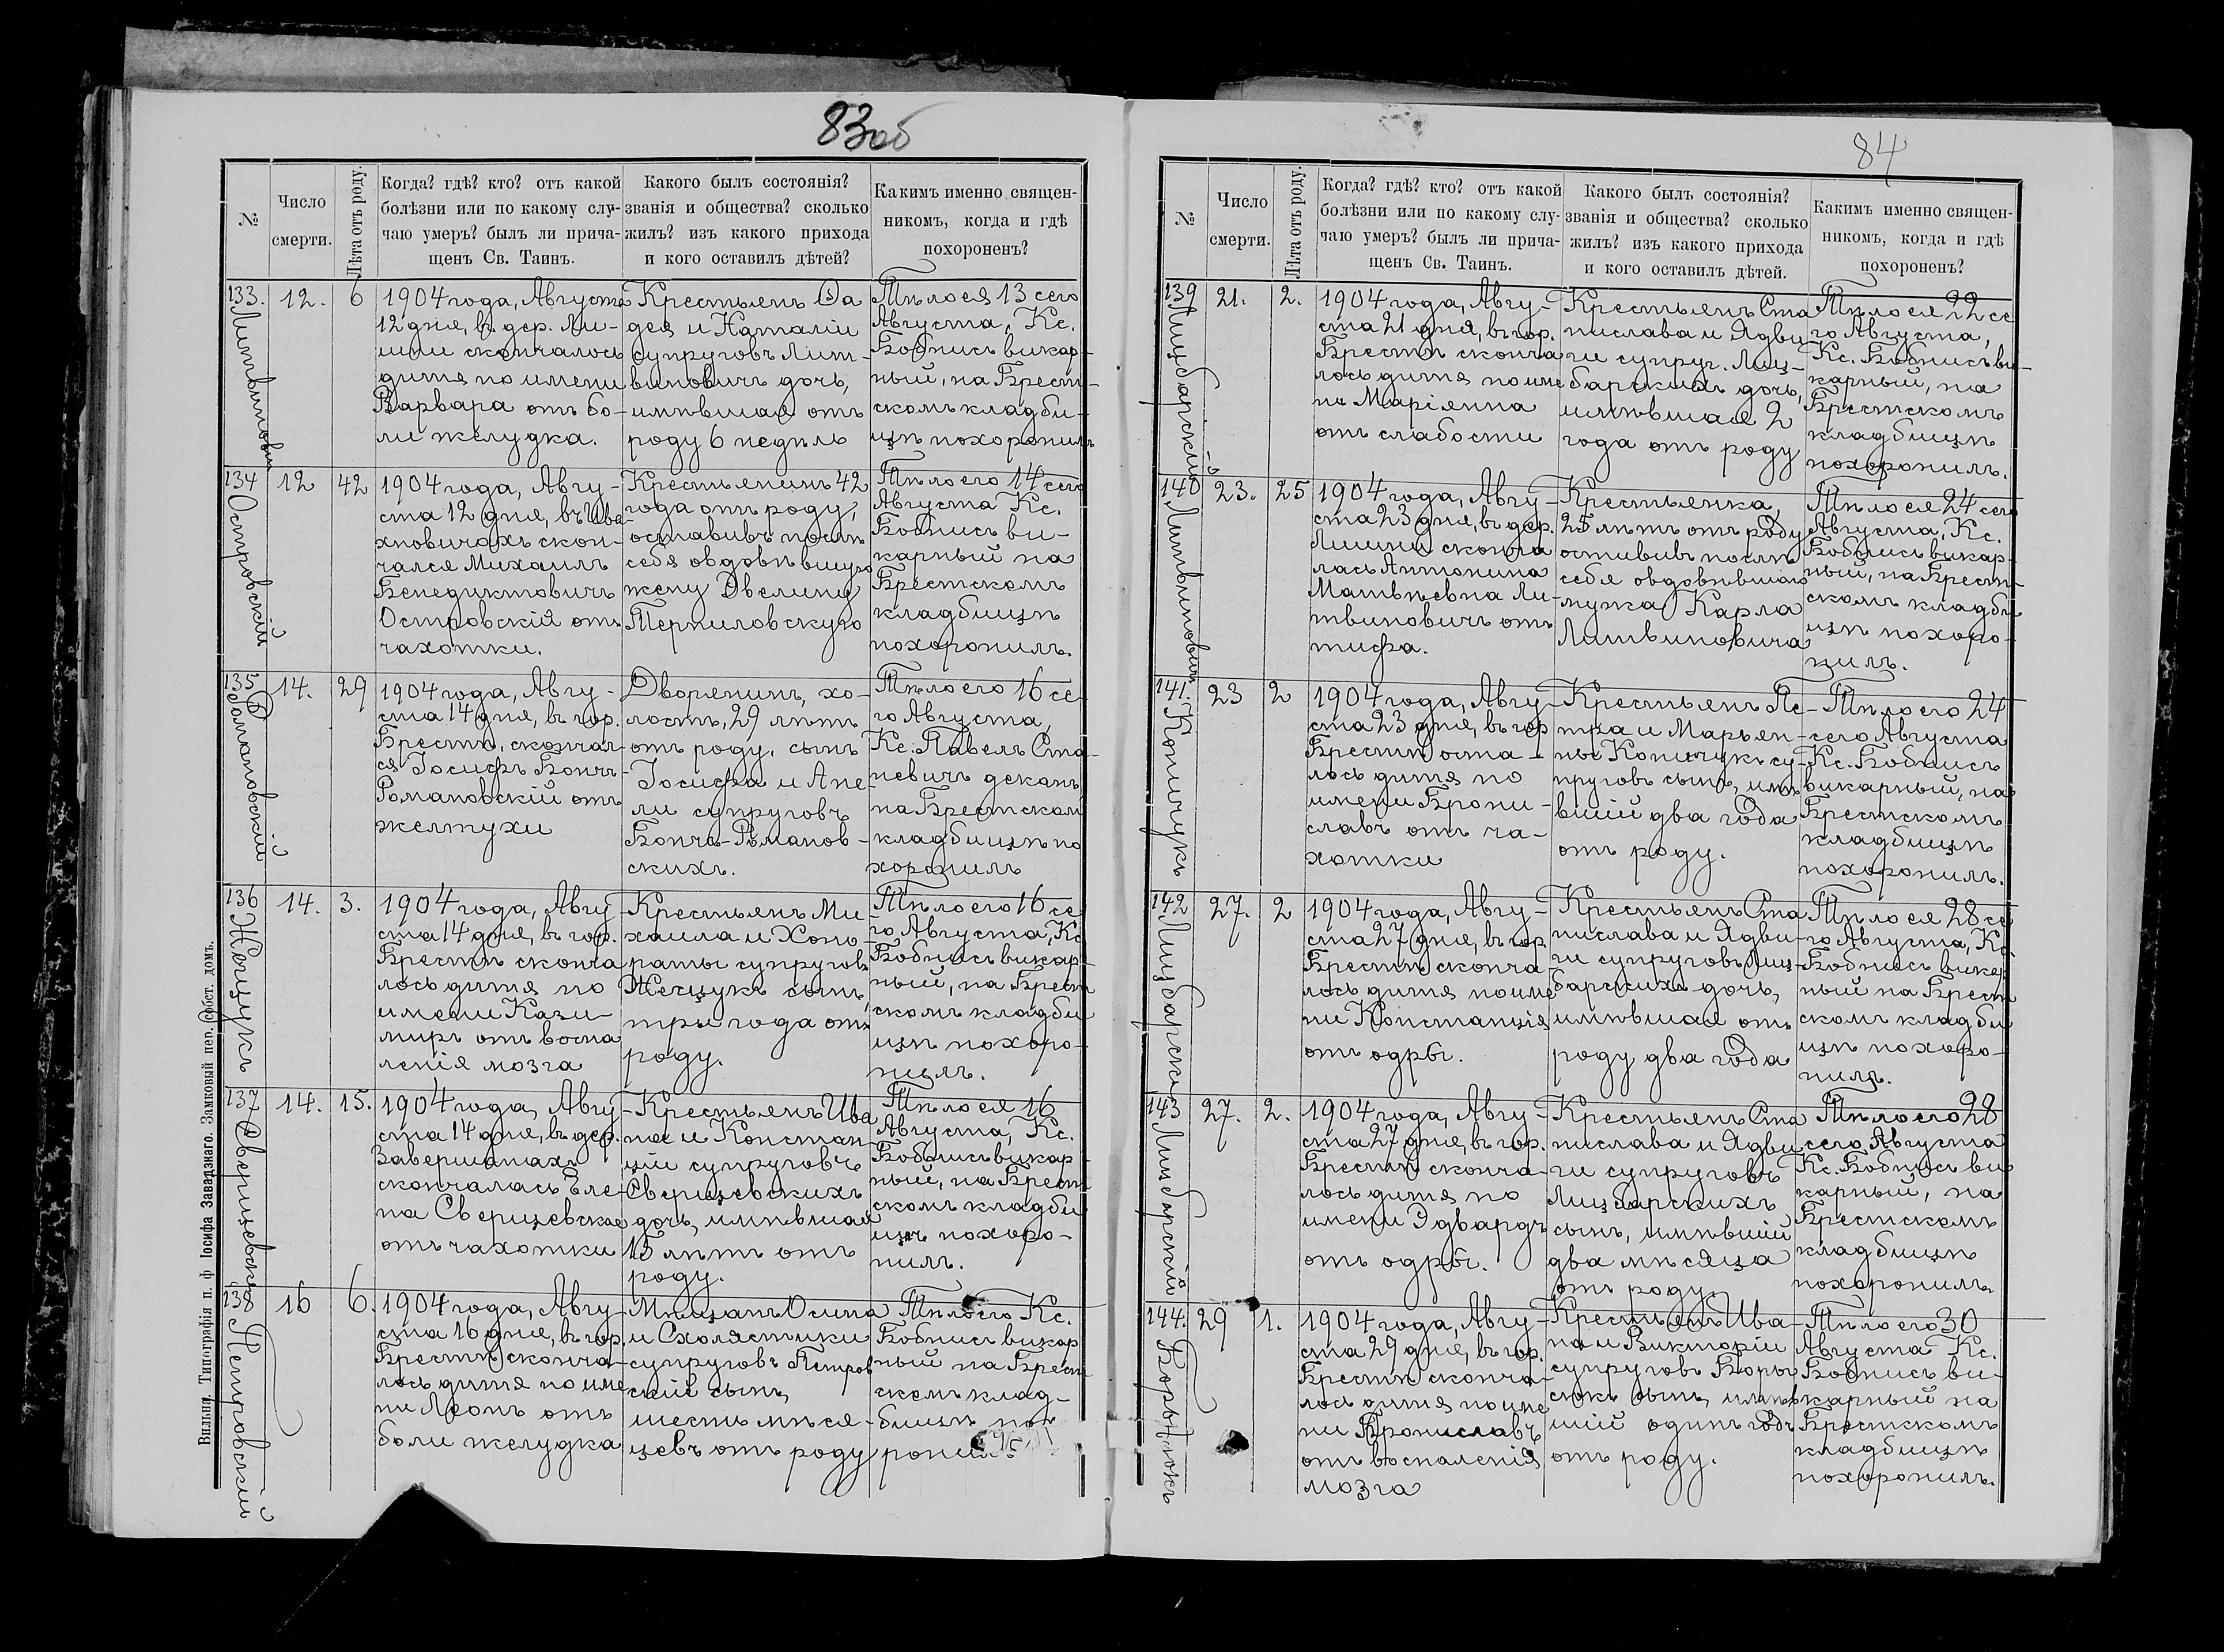 83об
№
Число
смерти.
Лѣта отъ роду.
Когда? гдѣ? кто? отъ какой
болѣзни или по какому слу-
чаю умеръ? былъ ли прича-
щенъ Св. Таинъ.
Какого былъ состоянія?
званія и общества? сколько
жилъ? изъ какого прихода
и кого оставилъ дѣтей?
Какимъ именно священ-
никомъ, когда и гдѣ
похороненъ?
133.
Литвиновичъ
12.
6
1904 года, Августа
12 дня, въ дер. Ли-
скончалось
дитя по имени
Варвара отъ бо-
ли желудка.
Крестьянъ Ѳа
дея и Наталіи
супруговъ Лит-
виновичъ дочь,
имѣвшая отъ
роду 6 недѣль
Тѣло ея 13 сего
Августа, Кс.
Бобнисъ викар-
ный, на Брест-
скомъ кладби-
щѣ похоронилъ
134
Островскій
12
42
1904 года, Авгу-
ста 12 дня, въ Ива-
хновичахъ скон-
чался Михаилъ
Бенедиктовичъ
Островскій отъ
чахотки.
Крестьянинъ 42
года отъ роду,
оставивъ послѣ
себя овдовѣвшую
жену Эвелину
Терпиловскую
Тѣло его 14 сего
Августа Кс.
Бобнисъ ви-
карный на
Брестскомъ
кладбищѣ
похоронилъ.
135
Романовскій
14.
29
1904 года, Авгу-
ста 14 дня, въ гор.
Брестѣ, скончал-
ся Іосифъ Бончъ-
Романовскій отъ
желтухи
Дворянинъ, хо-
лостъ, 29 лѣтъ
отъ роду, сынъ
Іосифа и Ане-
ли супруговъ
Бонча-Романов-
скихъ.
Тѣло его 16 се-
го Августа,
Кс. Павелъ Ста-
невичъ деканъ,
на Брестском
кладбищѣ по
хоронилъ
136
Жещукъ
14.
3.
1904 года, Авгу-
ста 14 дня, въ гор.
Брестѣ сконча
лось дитя по
имени Кази-
миръ отъ воспа
ленія мозга
Крестьянъ Ми-
хаила и Хоно-
раты супруговъ
Жещукъ сынъ,
три года отъ
роду.
Тѣло его 16 се
го Августа, Кс
Бобнисъ викар-
ный, на Брест
скомъ кладби
щѣ похоро-
нилъ.
137
Сверщевская
14.
15.
1904 года, Авгу-
ста 14 дня, въ дер.
Завершанахъ
скончалась Еле-
на Сверщевская
отъ чахотки
Крестьянъ Ива
на и Констан
ціи супруговъ
Сверщевскихъ
дочь, имѣвшая
15 лѣтъ отъ
роду.
Тѣло ея 16
Августа, Кс.
Бобнисъ викар-
ный, на Брест
скомъ кладби
щѣ похоро-
нилъ.
138
Петровскій
16
6.
1904 года, Авгу-
ста 16 дня, въ гор.
Брестѣ сконча-
лось дитя по име
ни Леонъ отъ
боли желудка
Мѣщанъ Осипа
и Схолястики
супруговъ Петров
скій сынъ,
шесть мѣся-
цевъ отъ роду
Тѣло его Кс.
Бобнисъ викар
ный на Брест
скомъ клад-
бищѣ похо
ронилъ
Вильна. Типографія п. ф Іосифа Завадзкаго. Замковый пер. собст. домъ.
84
№
Число
смерти.
Лѣта отъ роду.
Когда? гдѣ? кто? отъ какой
болѣзни или по какому слу-
чаю умеръ? былъ ли прича-
щенъ Св. Таинъ.
Какого былъ состоянія?
званія и общества? сколько
жилъ? изъ какого прихода
и кого оставилъ дѣтей.
Какимъ именно священ-
никомъ, когда и гдѣ
похороненъ?
139
Лицбарскій
21.
2.
1904 года, Авгу-
ста 21 дня, въ гор.
Брестѣ сконча
лось дитя по име
нъ Маріянна
отъ слабости
Крестьянъ Ста
нислава и Ядви
ги супруг. Лиц-
барскихъ дочь,
имѣвшая 2
года отъ роду
Тѣло ея 22 се
го Августа,
Кс. Бобнисъ ви-
карный, на
Брестскомъ
кладбищѣ
похоронилъ.
140
Литвиновичъ
23.
25
1904 года, Авгу-
ста 23 дня, въ дер.
сконча
лась Антонина
Матвѣевна Ли-
твиновичъ отъ
тифа.
Крестьянка,
25 лѣтъ отъ роду
оставивъ послѣ
себя овдовѣвшаго
мужа Карла
Литвиновича
Тѣло ея 24 сего
Августа, Кс.
Бобнисъ викар-
ный, на Брест-
скомъ кладби
щѣ похоро-
нилъ.
141.
Коничукъ
23
2
1904 года, Авгу-
ста 23 дня, въ гор
Брестѣ оста-
лось дитя по
имени Брони-
славъ отъ ча-
хотки
Крестьянъ Пе-
тра и Марьян-
ны Коничукъ су-
пруговъ сынъ, имѣ
вшій два года
отъ роду.
Тѣло его 24
сего Августа
Кс. Бобнисъ
викарный, на
Брестскомъ
кладбищѣ
похоронилъ.
142
Лицбарская
27.
2
1904 года, Авгу-
ста 27 дня, въ гор
Брестѣ сконча-
лось дитя по име
ни Констанція
отъ одры.
Крестьянъ Ста
нислава и Ядви-
ги супруговъ Лиц-
барскихъ дочь,
имѣвшая отъ
роду два года
Тѣло ея 28 се
го Августа, Кс
Бобнисъ викар
ный на Брест
скомъ кладби
щѣ похоро-
нилъ.
143
Лицбарскій
27.
2.
1904 года, Авгу-
ста 27 дня, въ гор.
Брестѣ сконча-
лось дитя по
имени Эдвардъ
отъ одры.
Крестьянъ Ста
нислава и Ядви
ги супруговъ
Лицбарскихъ
сынъ, имѣвшій
два мѣсяца
отъ роду.
Тѣло его 28
сего Августа
Кс. Бобнисъ ви
карный, на
Брестскомъ
кладбищѣ
похоронилъ
144.
29
1.
1904 года, Авгу-
ста 29 дня, въ гор.
Брестѣ сконча-
лось дитя по име
ни Брониславъ
отъ воспаленія
мозга
Крестьянъ Ива
на и Викторіи
супруговъ Боры
сюкъ сынъ, имѣв
шій одинъ годъ
отъ роду.
Тѣло его 30
Августа Кс.
Бобнисъ ви-
карный на
Брестскомъ
кладбищѣ
похоронилъ.